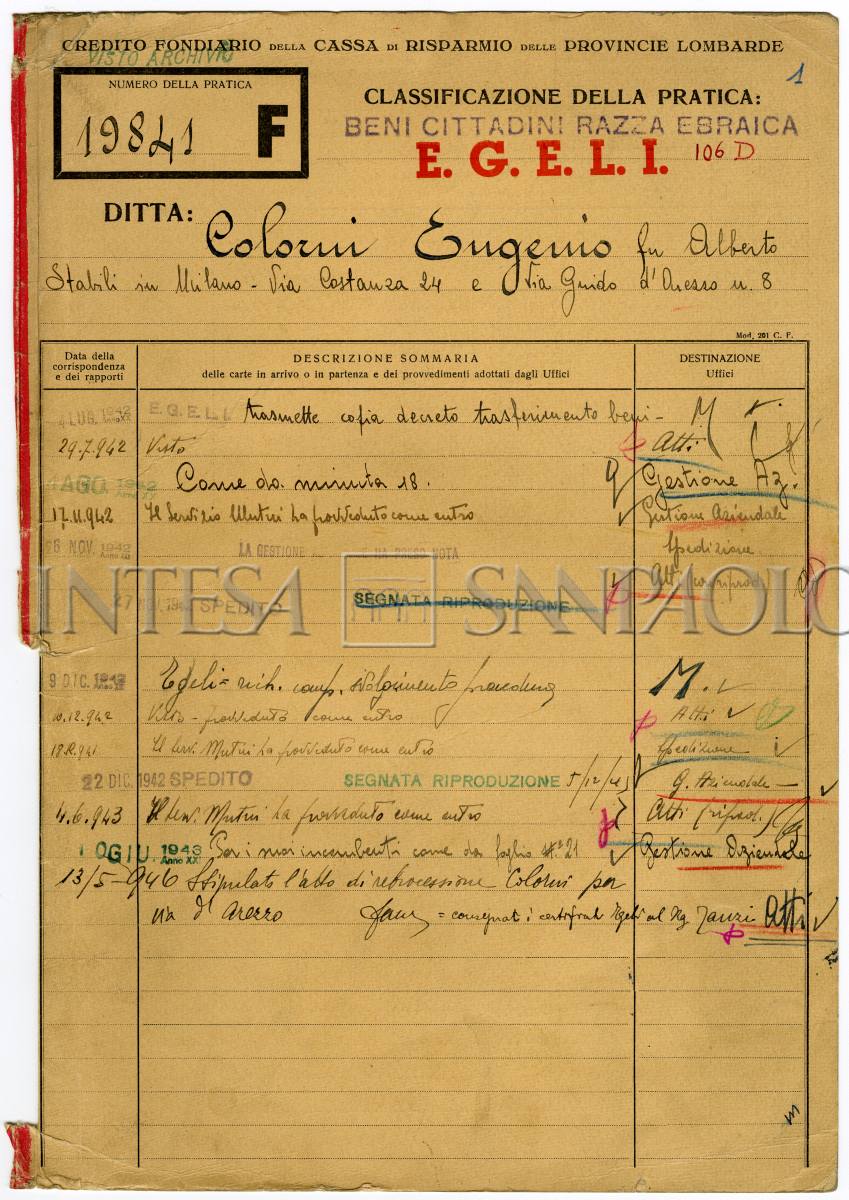 CREDITO FONDIARIO DELLA CASSA DI RISPARMIO DELLE PROVINCIE LOMBARDE
VISTO ARCHIVIO
1
NUMERO DELLA PRATICA
19841 F
CLASSIFICAZIONE DELLA PRATICA:
BENI CITTADINI RAZZA EBRAICA
E. G. E. L. I. 106 D
DITTA: Colorni Eugenio fu Alberto
Stabili in Milano - Via Costanza 24 e Via Guido d'Arezzo n. 8
Mod. 201 C. F.
Data della corrispondenza e dei rapporti
DESCRIZIONE SOMMARIA
delle carte in arrivo o in partenza e dei provvedimenti adottati dagli Uffici
DESTINAZIONE
Uffici
4 LUG. 1942 Anno XX E.G.E.L.I. trasmette copia decreto trasferimento beni - M
29.7.942 Visto Atti
AGO 1942 Anno XX Come da minuta 18. Gestione Az.
17.11.942 Il Servizio Mutui ha provveduto come entro Gestione Aziendale
Spedizione
26 NOV. 1942 LA GESTIONE HA PRESO NOTA
Atti (con riprod.)
27 NOV. 1942 SPEDITO SEGNATA RIPRODUZIONE
INTESA SANPAOLO
9 DIC. 1942 Egeli = rich. comp. svolgimento procedura M.
10.12.942 Visto - provveduto come entro Atti
18.12.941 Il Serv. Mutui ha provveduto come entro Spedizione
22 DIC. 1942 SPEDITO SEGNATA RIPRODUZIONE G. Aziendale
4.6.943 Il Serv. Mutui ha provveduto come entro Atti (riprod.)
10 GIU. 1943 Anno XXI Per i suoi incombenti come da foglio N.° 21 Gestione Aziendale
13/5-946 Stipulato l'atto di retrocessione Colorni per
via d'Arezzo = consegnati i certificati Egeli al Rg. Atti